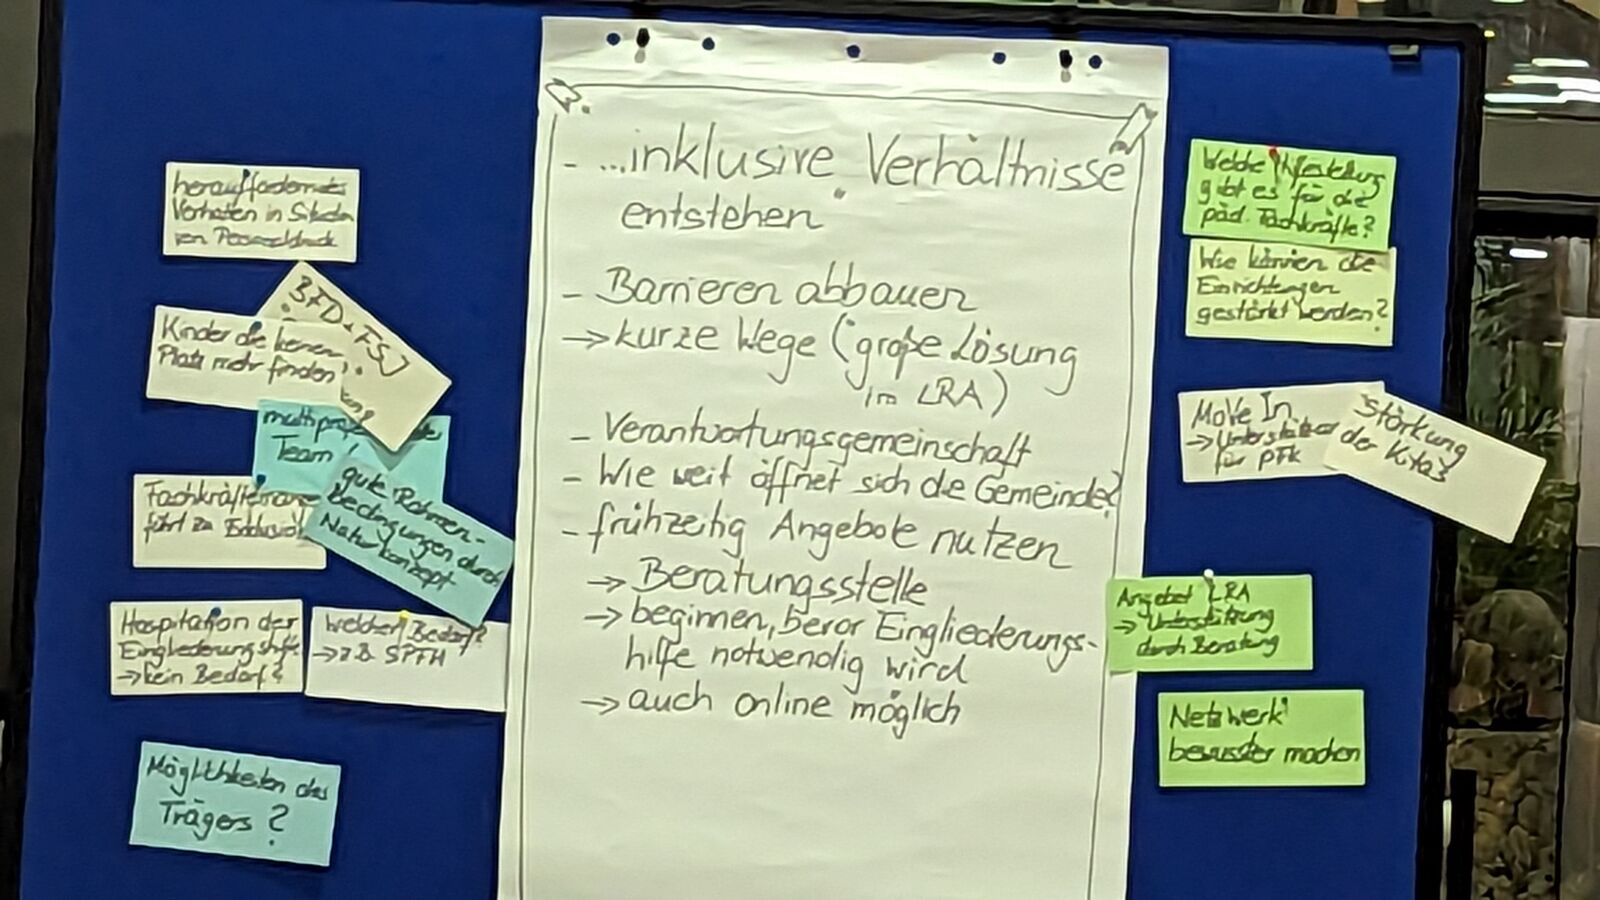 herausforderndes
Verhalten in
von Personaldruck
BFD + FSJ
Kinder die keinen
Platz mehr finden
Team
gute Rahmen-
bedingungen durch
Naturkonzept
führt zu
Hospitation der
Eingliederungshilfe
→ kein Bedarf?
welcher Bedarf?
→ z.B. SPFH
Möglichkeiten des
Trägers?
- ...inklusive Verhältnisse
entstehen"
- Barrieren abbauen
→ kurze Wege ("große Lösung
im LRA)
- Verantwortungsgemeinschaft
- Wie weit öffnet sich die Gemeinde?
- frühzeitig Angebote nutzen
→ Beratungsstelle
→ beginnen, bevor Eingliederungs-
hilfe notwendig wird
→ auch online möglich
Welche Hilfestellung
gibt es für die
päd. Fachkräfte?
Wie können die
Einrichtungen
gestärkt werden?
MoVe In
→ Unterstützer
für PFK
Stärkung
der Kitas
Angebot LRA
→ Unterstützung
durch Beratung
Netzwerk
bewusster machen